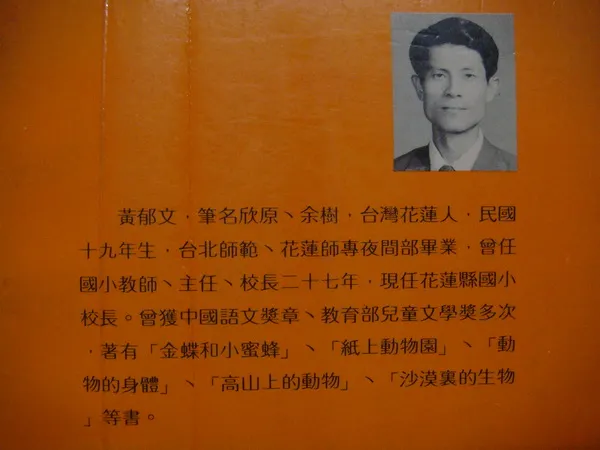 黃郁文，筆名欣原、余樹，台灣花蓮人，民國
十九年生，台北師範、花蓮師專夜間部畢業，曾任
國小教師、主任、校長二十七年，現任花蓮縣國小
校長。曾獲中國語文獎章、教育部兒童文學獎多次
，著有「金蝶和小蜜蜂」、「紙上動物園」、「動
物的身體」、「高山上的動物」、「沙漠裏的生物
」等書。